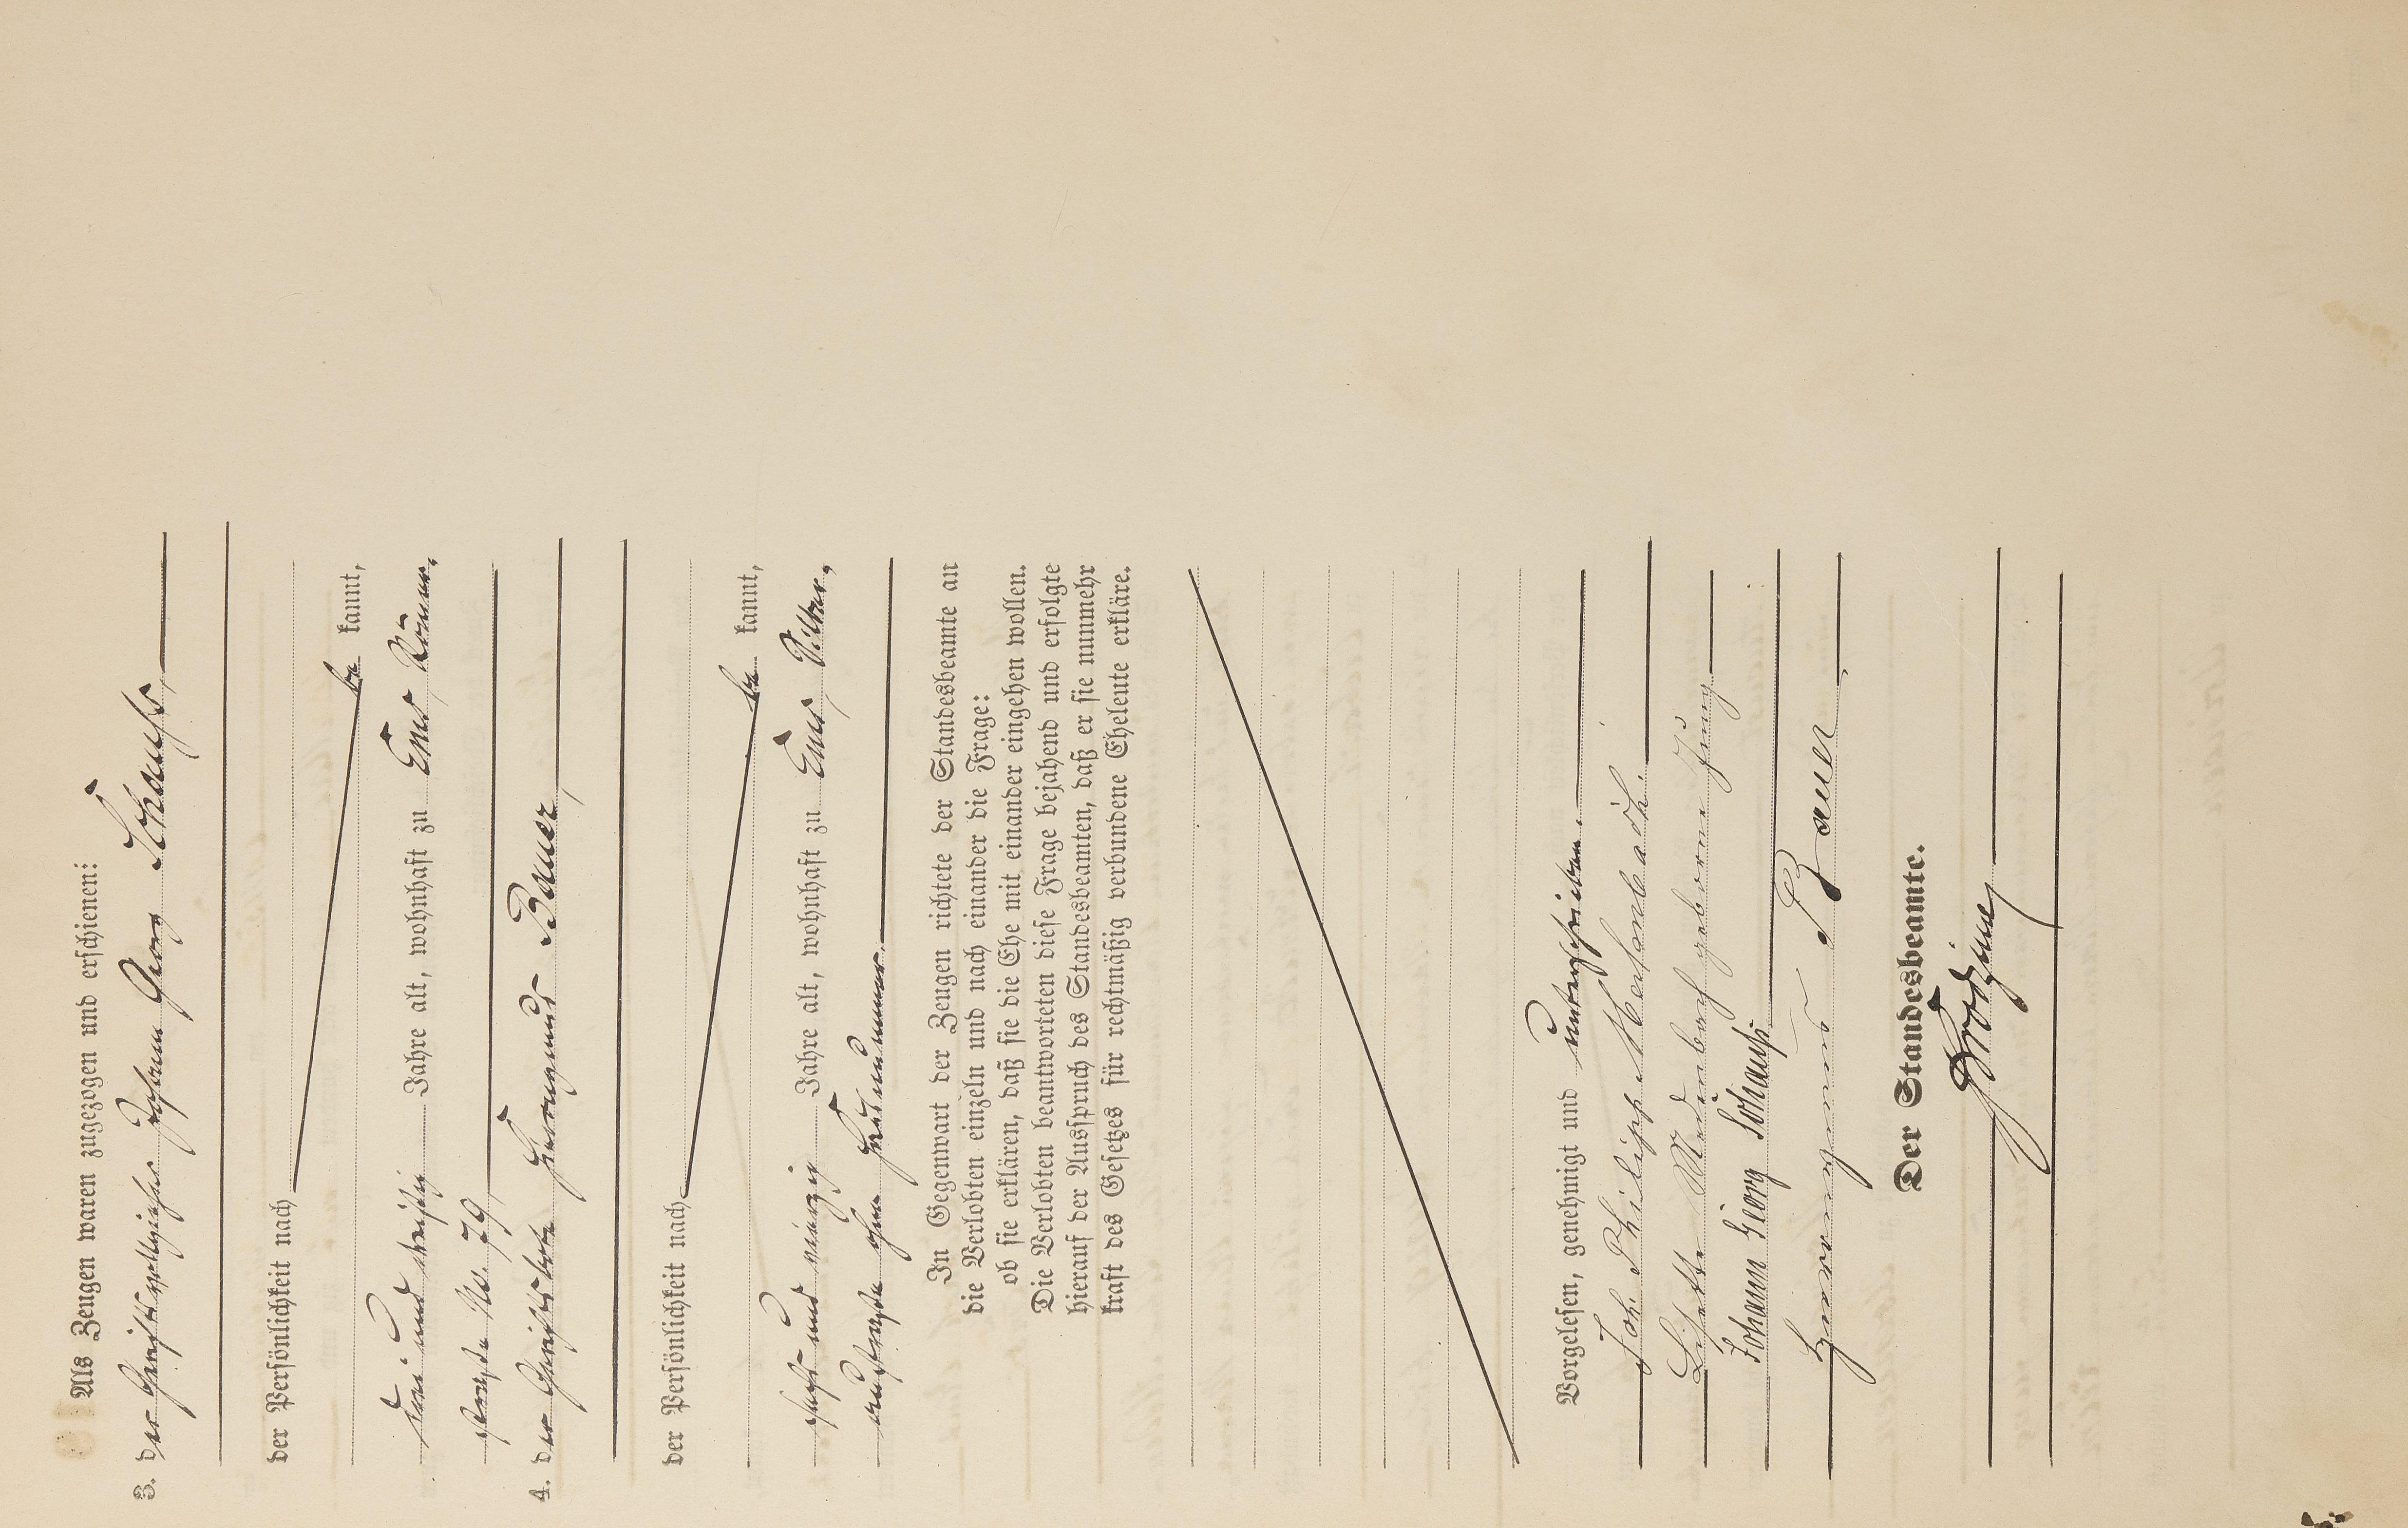 Als Zeugen waren zugezogen und erschienen:
3. der Gerichtsvollzieher Johann Georg Schauß,
der Persönlichkeit nach
be kannt,
drei und dreißig Jahre alt, wohnhaft zu Ems, Römer-
straße No. 79,
4. der Gerichtsbote Hieronymus Bauer,
der Persönlichkeit nach
be kannt,
sechs und vierzig Jahre alt, wohnhaft zu Ems, Silber-
austraße ohne Hausnummer.
In Gegenwart der Zeugen richtete der Standesbeamte an
die Verlobten einzeln und nach einander die Frage:
ob sie erklären, daß sie die Ehe mit einander eingehen wollen.
Die Verlobten beantworteten diese Frage bejahend und erfolgte
hierauf der Ausspruch des Standesbeamten, daß er sie nunmehr
kraft des Gesetzes für rechtmäßig verbundene Eheleute erkläre.
Vorgelesen, genehmigt und unterschrieben.
Joh. Philipp
Lisette geborne Jung
Johann Georg Schauß
Hieronymus Bauer
Der Standesbeamte.